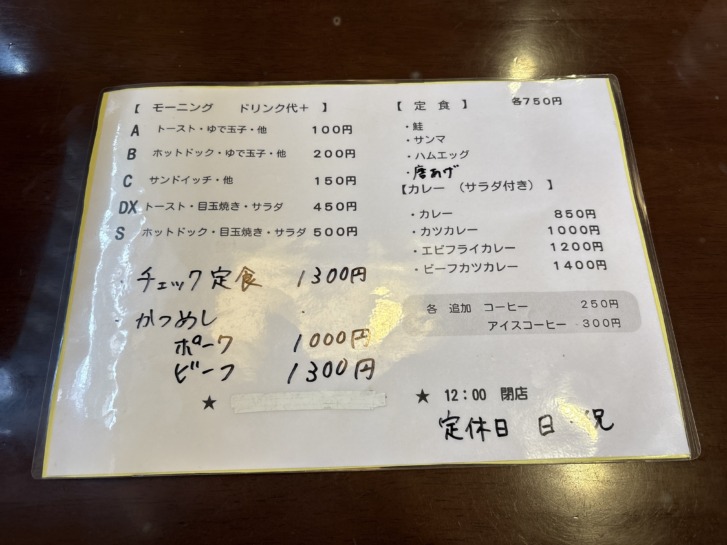 【 モーニング ドリンク代＋ 】
A トースト・ゆで玉子・他 100円
B ホットドック・ゆで玉子・他 200円
C サンドイッチ・他 150円
DX トースト・目玉焼き・サラダ 450円
S ホットドック・目玉焼き・サラダ 500円
・チェック定食 1300円
・かつめし
ポーク 1000円
ビーフ 1300円
★
【 定 食 】 各750円
・鮭
・サンマ
・ハムエッグ
・唐あげ
【カレー （サラダ付き） 】
・カレー 850円
・カツカレー 1000円
・エビフライカレー 1200円
・ビーフカツカレー 1400円
各 追加 コーヒー 250円
アイスコーヒー 300円
★ 12：00 閉店
定休日 日・祝